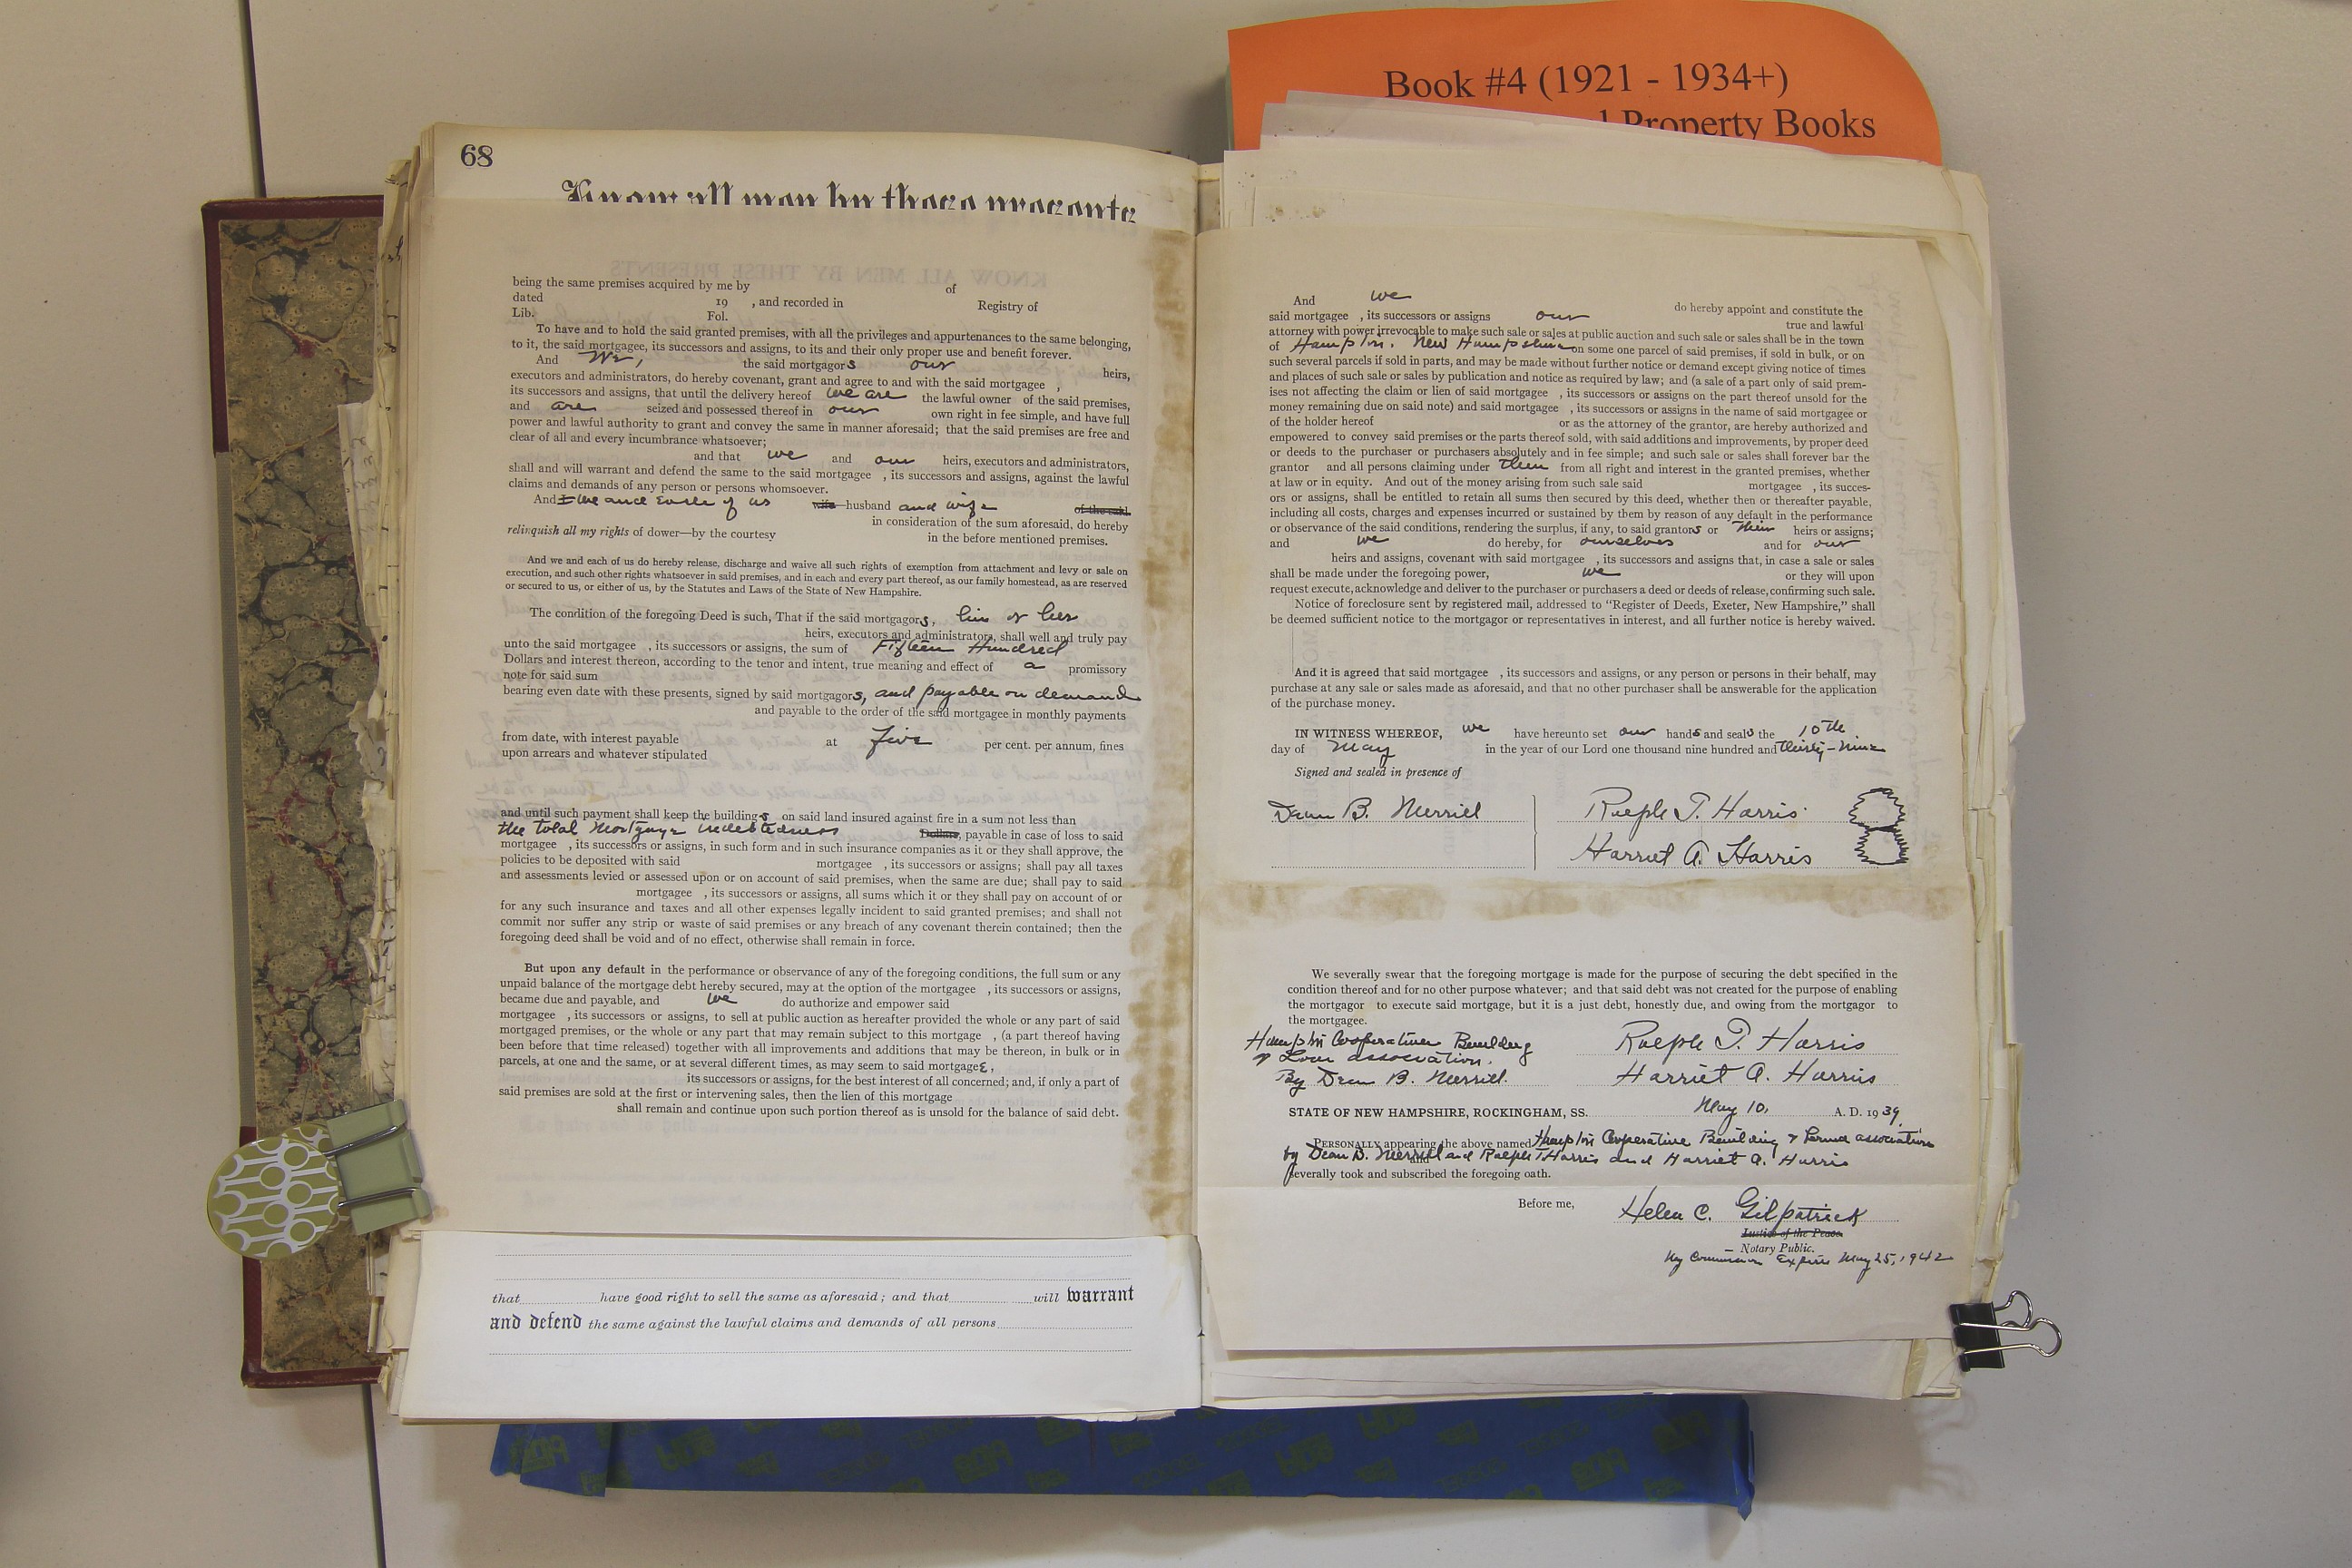 Book #4 (1921 - 1934+)
Property Books
68
Know all men by these presents
KNOW ALL MEN BY THESE PRESENTS
being the same premises acquired by me by of
dated 19 , and recorded in Registry of
Lib. Fol.
To have and to hold the said granted premises, with all the privileges and appurtenances to the same belonging,
to it, the said mortgagee, its successors and assigns, to its and their only proper use and benefit forever.
And We, the said mortgagors our heirs,
executors and administrators, do hereby covenant, grant and agree to and with the said mortgagee ,
its successors and assigns, that until the delivery hereof we are the lawful owner of the said premises,
and are seized and possessed thereof in our own right in fee simple, and have full
power and lawful authority to grant and convey the same in manner aforesaid; that the said premises are free and
clear of all and every incumbrance whatsoever;
and that we and our heirs, executors and administrators,
shall and will warrant and defend the same to the said mortgagee , its successors and assigns, against the lawful
claims and demands of any person or persons whomsoever.
And I we and Each of us wife husband and wife of the said
in consideration of the sum aforesaid, do hereby
relinquish all my rights of dower—by the courtesy in the before mentioned premises.
And we and each of us do hereby release, discharge and waive all such rights of exemption from attachment and levy or sale on
execution, and such other rights whatsoever in said premises, and in each and every part thereof, as our family homestead, as are reserved
or secured to us, or either of us, by the Statutes and Laws of the State of New Hampshire.
The condition of the foregoing Deed is such, That if the said mortgagors, his or her
heirs, executors and administrators, shall well and truly pay
unto the said mortgagee , its successors or assigns, the sum of Fifteen Hundred
Dollars and interest thereon, according to the tenor and intent, true meaning and effect of a promissory
note for said sum
bearing even date with these presents, signed by said mortgagors, and payable on demand
and payable to the order of the said mortgagee in monthly payments
from date, with interest payable at five per cent. per annum, fines
upon arrears and whatever stipulated
and until such payment shall keep the buildings on said land insured against fire in a sum not less than
the total mortgage indebtedness Dollars, payable in case of loss to said
mortgagee , its successors or assigns, in such form and in such insurance companies as it or they shall approve, the
policies to be deposited with said mortgagee , its successors or assigns; shall pay all taxes
and assessments levied or assessed upon or on account of said premises, when the same are due; shall pay to said
mortgagee , its successors or assigns, all sums which it or they shall pay on account of or
for any such insurance and taxes and all other expenses legally incident to said granted premises; and shall not
commit nor suffer any strip or waste of said premises or any breach of any covenant therein contained; then the
foregoing deed shall be void and of no effect, otherwise shall remain in force.
But upon any default in the performance or observance of any of the foregoing conditions, the full sum or any
unpaid balance of the mortgage debt hereby secured, may at the option of the mortgagee , its successors or assigns,
became due and payable, and we do authorize and empower said
mortgagee , its successors or assigns, to sell at public auction as hereafter provided the whole or any part of said
mortgaged premises, or the whole or any part that may remain subject to this mortgage , (a part thereof having
been before that time released) together with all improvements and additions that may be thereon, in bulk or in
parcels, at one and the same, or at several different times, as may seem to said mortgagee,
its successors or assigns, for the best interest of all concerned; and, if only a part of
said premises are sold at the first or intervening sales, then the lien of this mortgage
shall remain and continue upon such portion thereof as is unsold for the balance of said debt.
that have good right to sell the same as aforesaid; and that will warrant
and defend the same against the lawful claims and demands of all persons
And we do hereby appoint and constitute the
said mortgagee , its successors or assigns our true and lawful
attorney with power irrevocable to make such sale or sales at public auction and such sale or sales shall be in the town
of Hampton, New Hampshire on some one parcel of said premises, if sold in bulk, or on
such several parcels if sold in parts, and may be made without further notice or demand except giving notice of times
and places of such sale or sales by publication and notice as required by law; and (a sale of a part only of said prem-
ises not affecting the claim or lien of said mortgagee , its successors or assigns on the part thereof unsold for the
money remaining due on said note) and said mortgagee , its successors or assigns in the name of said mortgagee or
of the holder hereof or as the attorney of the grantor, are hereby authorized and
empowered to convey said premises or the parts thereof sold, with said additions and improvements, by proper deed
or deeds to the purchaser or purchasers absolutely and in fee simple; and such sale or sales shall forever bar the
grantor and all persons claiming under them from all right and interest in the granted premises, whether
at law or in equity. And out of the money arising from such sale said mortgagee , its succes-
ors or assigns, shall be entitled to retain all sums then secured by this deed, whether then or thereafter payable,
including all costs, charges and expenses incurred or sustained by them by reason of any default in the performance
or observance of the said conditions, rendering the surplus, if any, to said grantors or their heirs or assigns;
and we do hereby, for ourselves and for our
heirs and assigns, covenant with said mortgagee , its successors and assigns that, in case a sale or sales
shall be made under the foregoing power, we or they will upon
request execute, acknowledge and deliver to the purchaser or purchasers a deed or deeds of release, confirming such sale.
Notice of foreclosure sent by registered mail, addressed to "Register of Deeds, Exeter, New Hampshire," shall
be deemed sufficient notice to the mortgagor or representatives in interest, and all further notice is hereby waived.
And it is agreed that said mortgagee , its successors and assigns, or any person or persons in their behalf, may
purchase at any sale or sales made as aforesaid, and that no other purchaser shall be answerable for the application
of the purchase money.
IN WITNESS WHEREOF, we have hereunto set our hands and seals the 10th
day of May in the year of our Lord one thousand nine hundred and thirty-nine
Signed and sealed in presence of
Dean B. Merrill Ralph T. Harris
Harriet A. Harris
We severally swear that the foregoing mortgage is made for the purpose of securing the debt specified in the
condition thereof and for no other purpose whatever; and that said debt was not created for the purpose of enabling
the mortgagor to execute said mortgage, but it is a just debt, honestly due, and owing from the mortgagor to
the mortgagee.
Hampton Cooperative Building Ralph T. Harris
& Loan association.
By Dean B. Merrill. Harriet A. Harris
STATE OF NEW HAMPSHIRE, ROCKINGHAM, SS. May 10, A. D. 1939.
PERSONALLY appearing the above named Hampton Cooperative Building & Loan association
by Dean B. Merrill and and Ralph T Harris and Harriet A. Harris
severally took and subscribed the foregoing oath.
Before me, Helen C. Gilpatrick
Justice of the Peace.
Notary Public.
My Commission Expires May 25, 1942